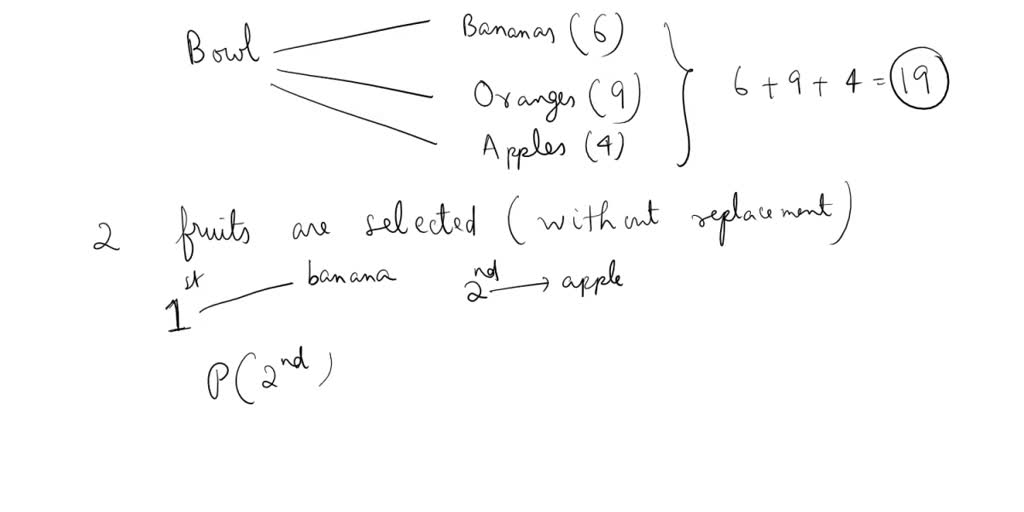 Bowl
Bananas (6)
Oranges (9)
Apples (4)
6 + 9 + 4 = 19
2 fruits are selected (without replacement)
1st banana 2nd → apple
P(2nd)